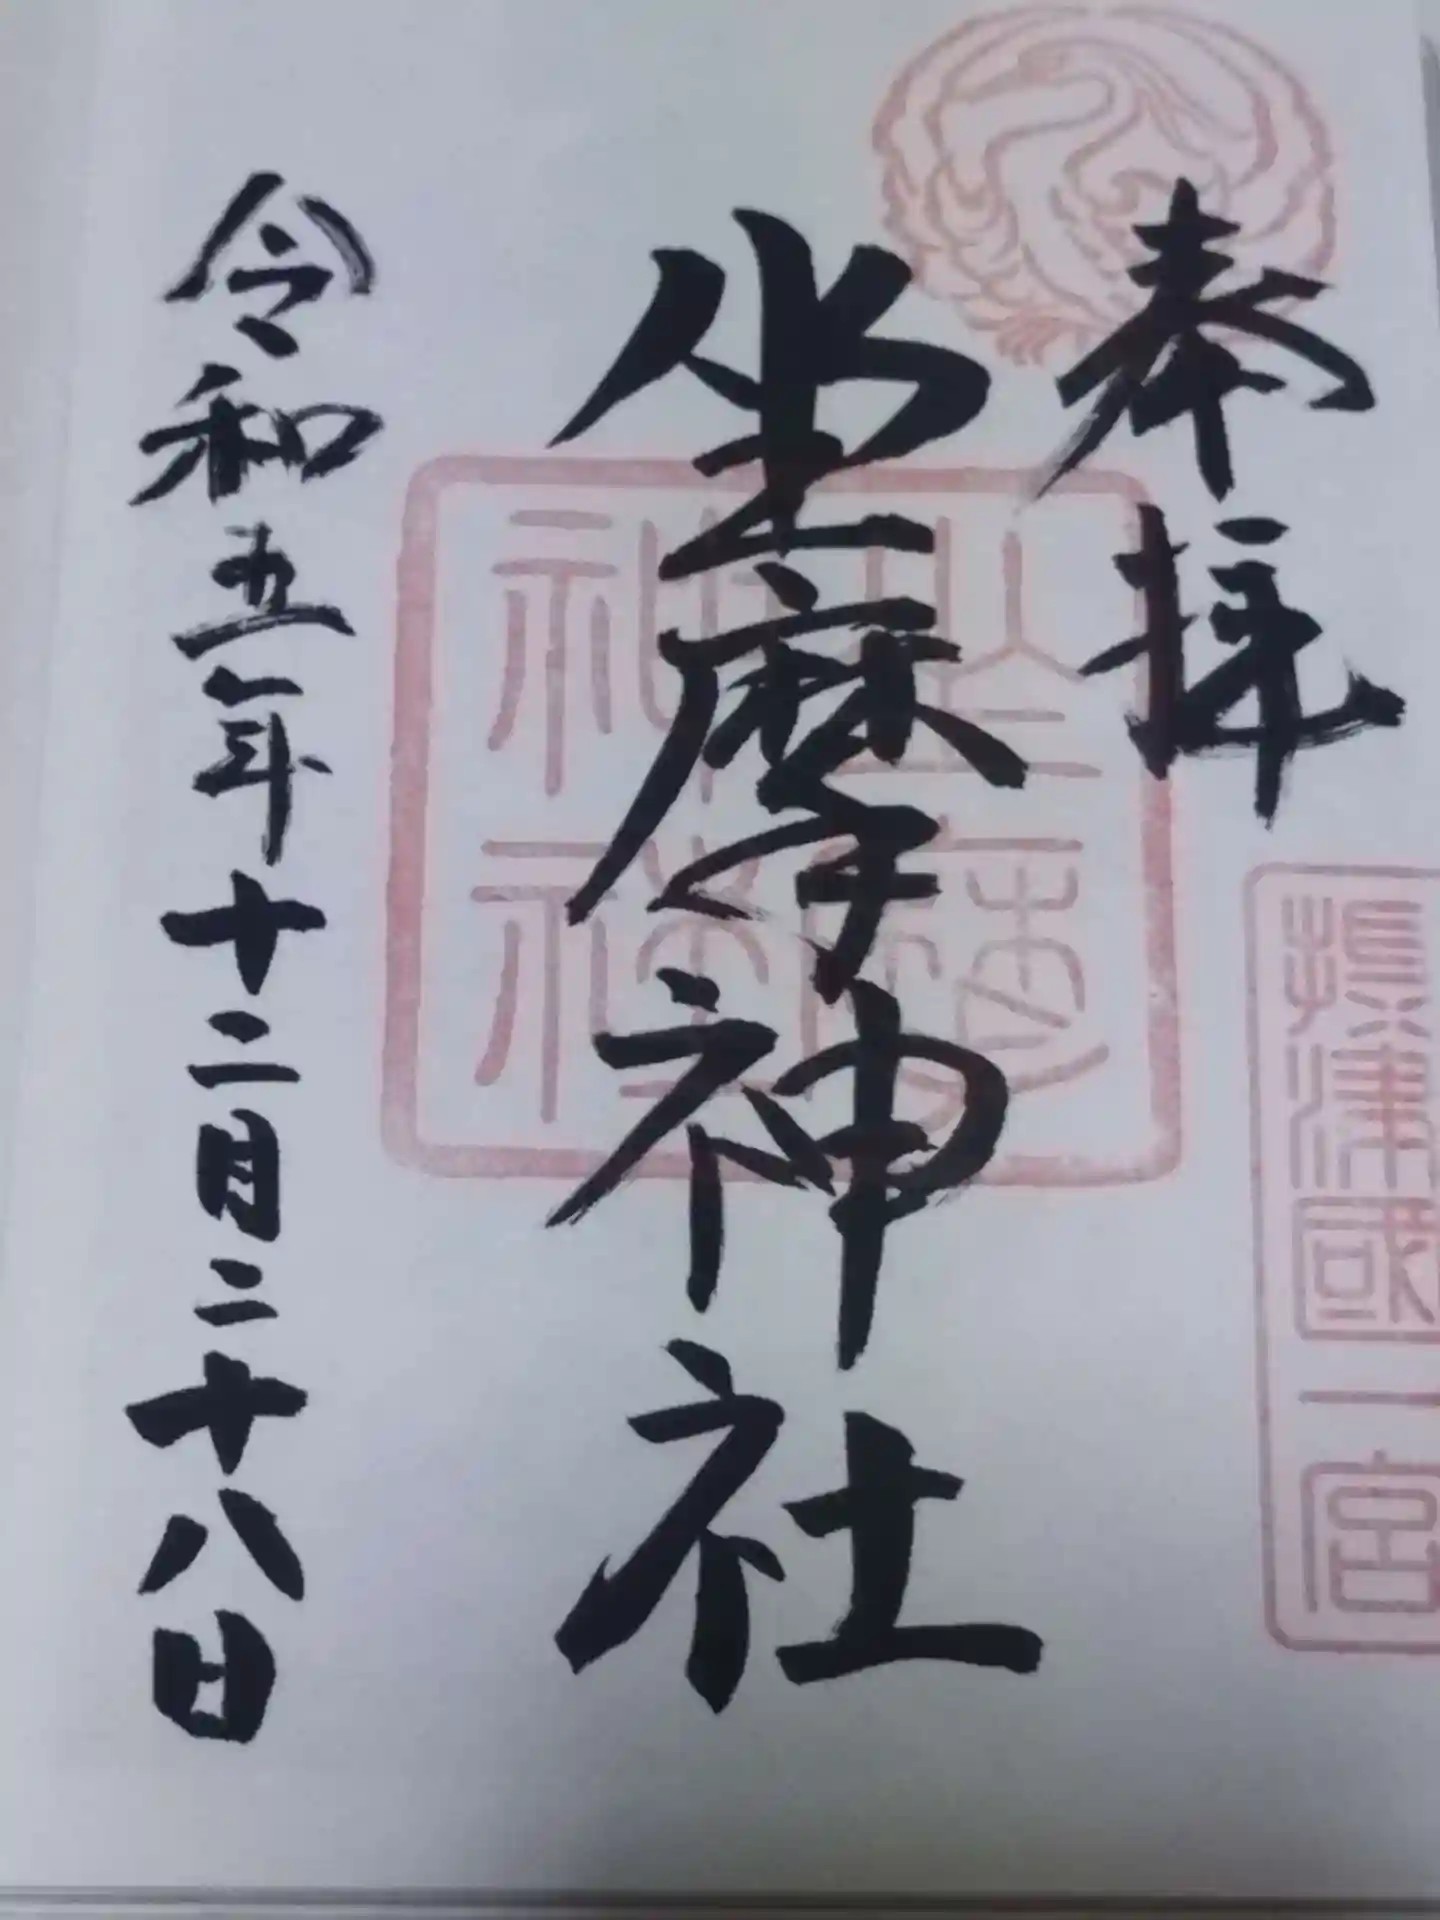 奉拝
攝津國一宮
坐摩神社
坐摩神社
令和五年十二月二十八日